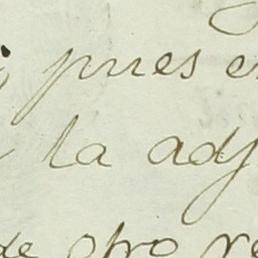 pues e
la adj
de otro re